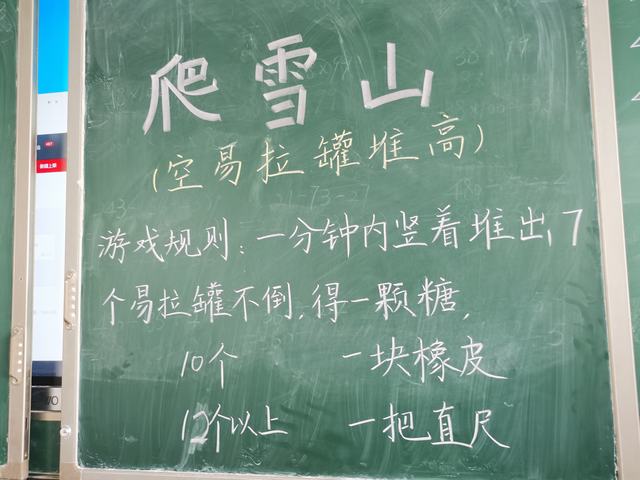 爬雪山
(空易拉罐堆高)
游戏规则:一分钟内竖着堆出7
个易拉罐不倒,得一颗糖,
10个 一块橡皮
12个以上 一把直尺